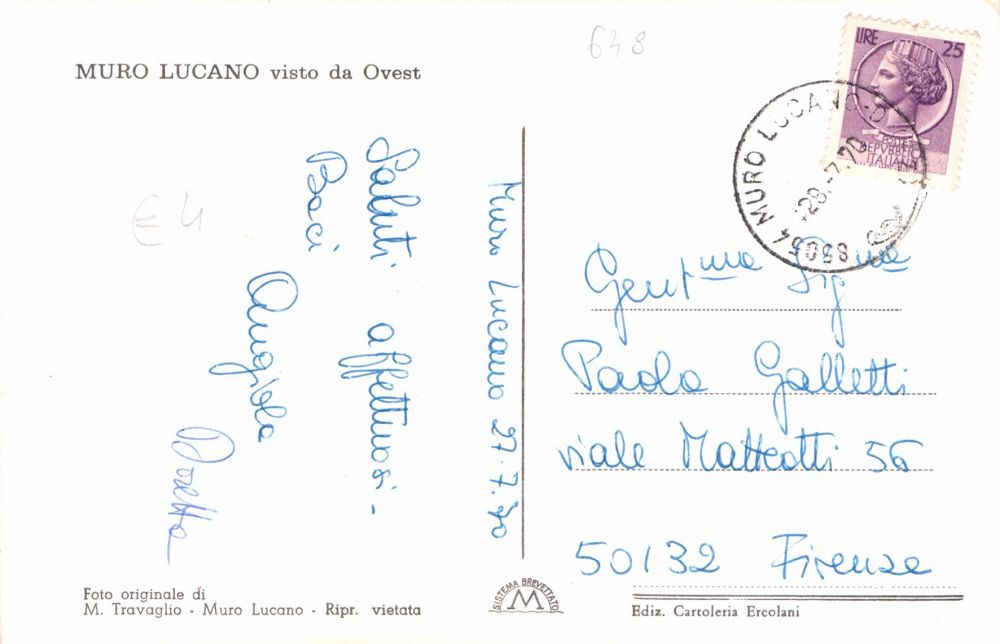 648
MURO LUCANO visto da Ovest
LIRE 25
POSTE
REPVBBLICA
ITALIANA
85054 MURO LUCANO
28.-7.70
€ 4
Muro Lucano 27.7.70
Saluti affettuosi -
Baci
Angiola
Gent.ma Sig.na
Paola Galletti
viale Matteotti 56
50132 Firenze
Foto originale di
M. Travaglio - Muro Lucano - Ripr. vietata
SISTEMA BREVETTATO
M
Ediz. Cartoleria Ercolani